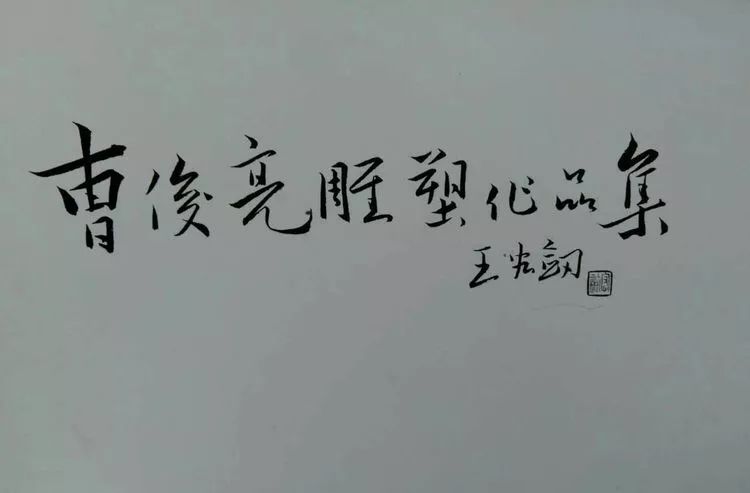 曹俊亮雕塑作品集
王宏剑